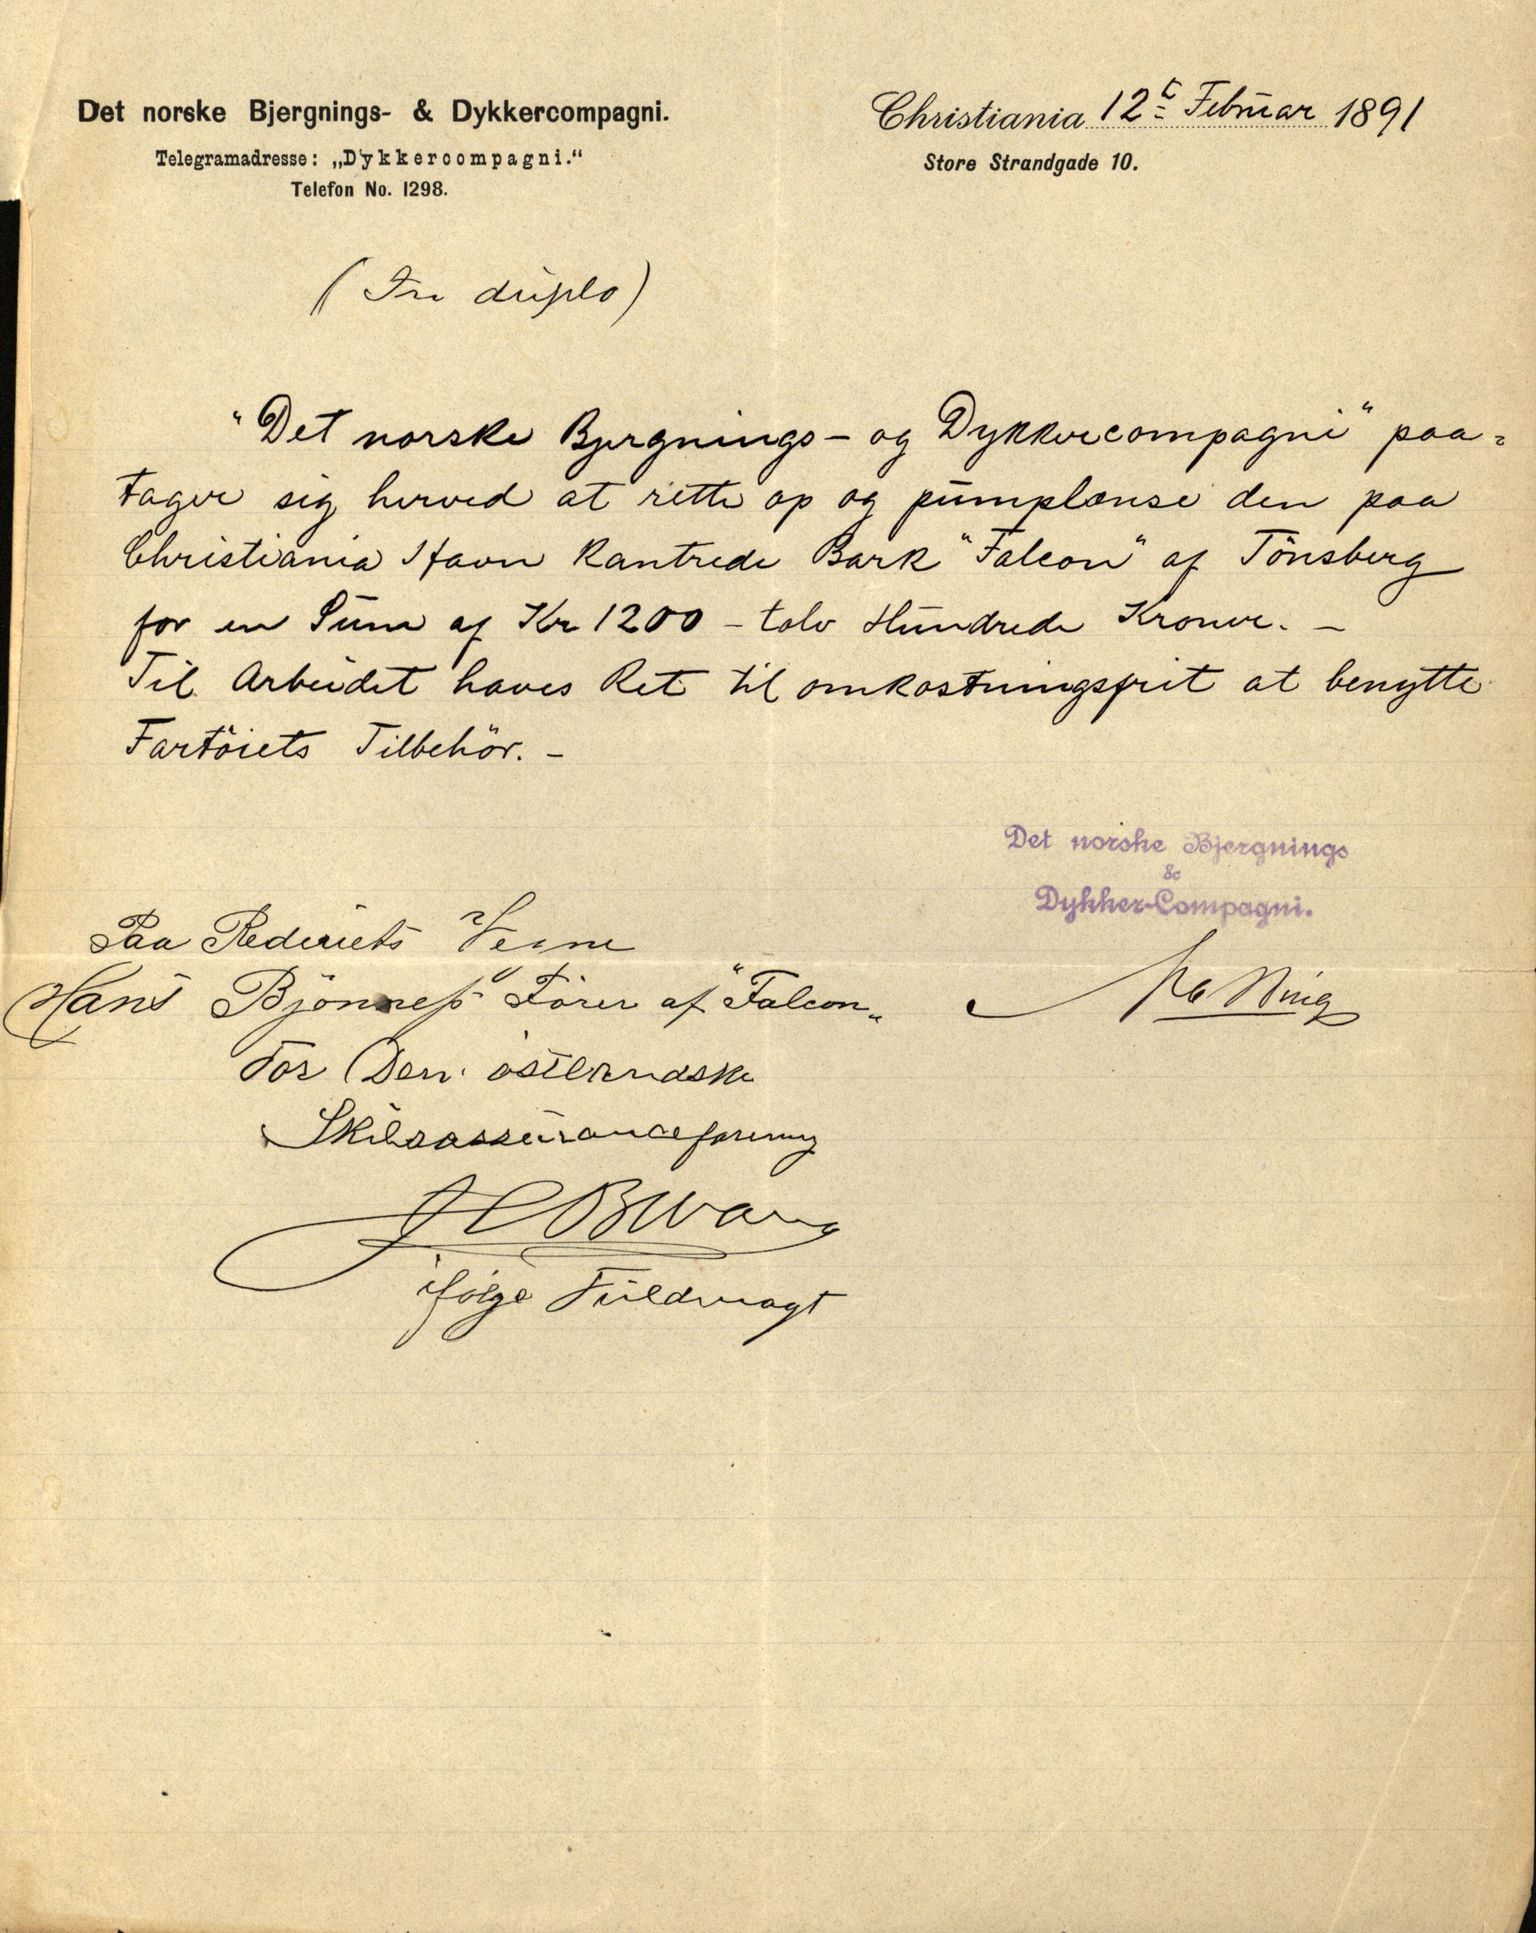 Det norske Bjergnings- & Dykkercompagni.
Telegramadresse: „Dykkercompagni.“
Telefon No. 1298.
Christiania 12t Februar 1891
Store Strandgade 10.
(In duplo)
"Det norske Bjergnings- og Dykkercompagni" paa=
tager sig herved at rette op og pumplænse den paa
Christiania Havn kantrede Bark "Falcon" af Tönsberg
for en Sum af Kr 1200 - tolv Hundrede Kroner. -
Til Arbeidet haves Ret til omkostningsfrit at benytte
Fartöiets Tilbehör. -
Det norske Bjergnings
&
Dykker-Compagni.
Paa Rederiets Vegne
Hans Bjönness Förer af "Falcon"
For Den østlandske
Skibsassuranceforening
ifølge Fuldmagt